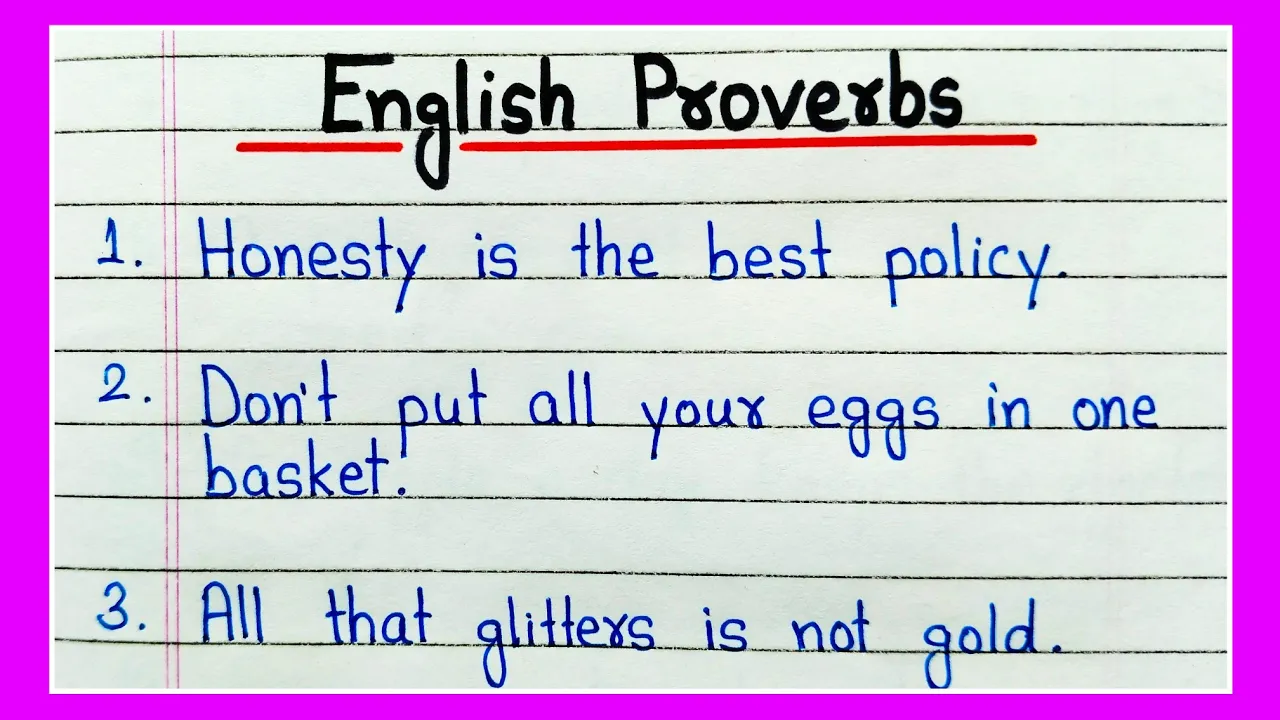 English Proverbs
1. Honesty is the best policy.
2. Don't put all your eggs in one
basket.
3. All that glitters is not gold.